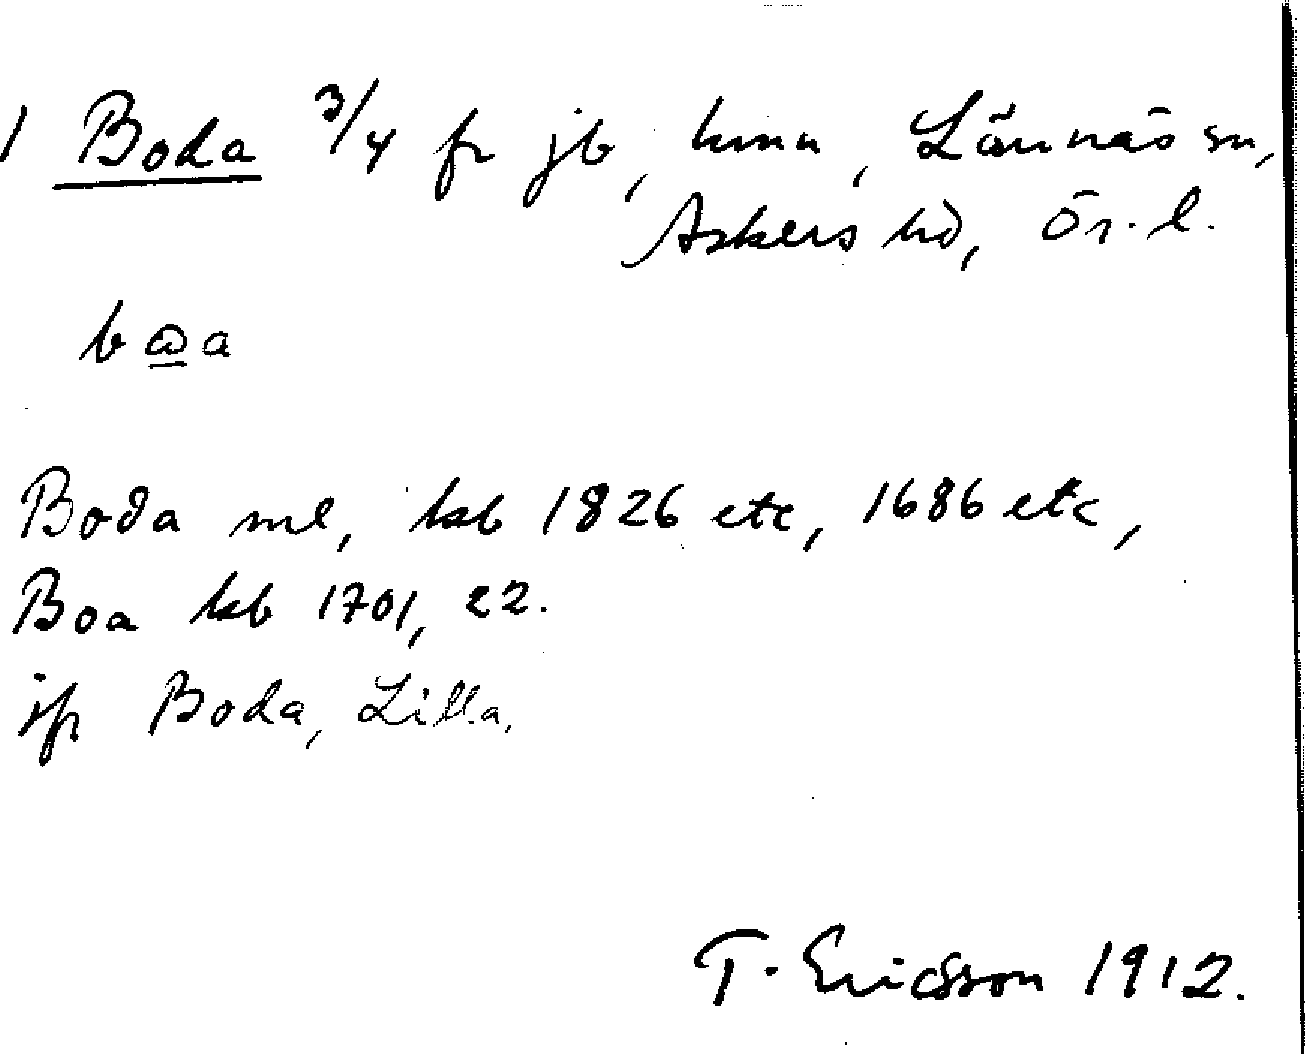 1 Boda 3/4 fr jb, hmn, Lännäs sn,
Askers hd, Ör. l.
bωa
Boda ml, hsb 1826 etc, 1686 etc,
Boa hsb 1701, 22.
jfr Boda, Lilla.
T. Ericsson 1912.